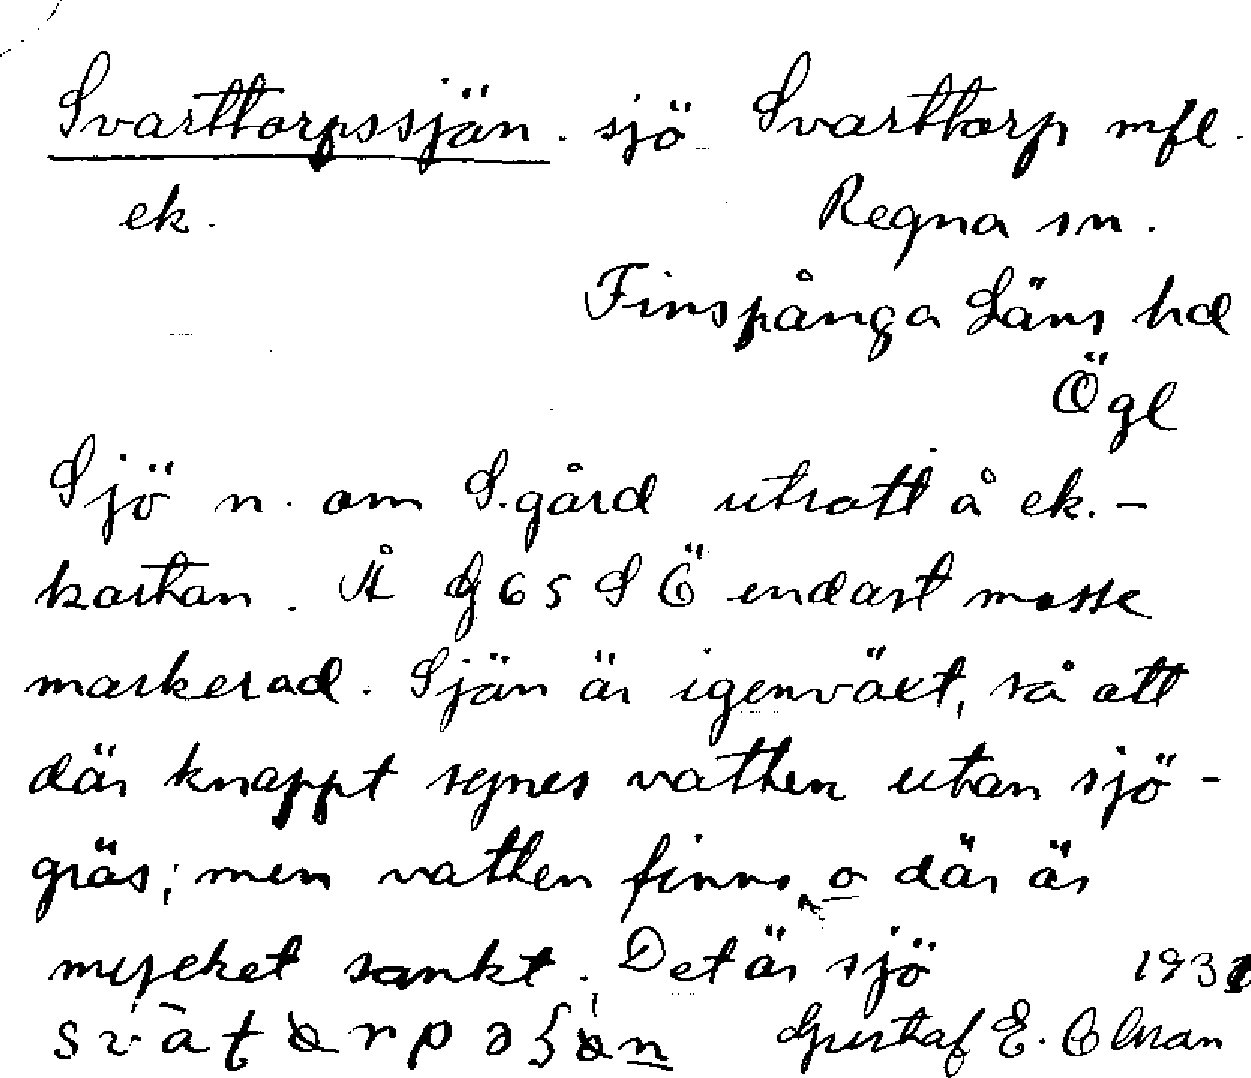 Svarttorpssjön. sjö Svarttorp mfl.
ek. Regna sn.
Finspånga Läns hd
Ögl
Sjö n. om S.gård utsatt å ek.-
kartan. Å G 65 SÖ endast mosse
markerad. Sjön är igenväxt, så att
där knappt synes vatten utan sjö-
gräs; men vatten finns, o där är
mycket sankt. Det är sjö 1931
Gustaf E.